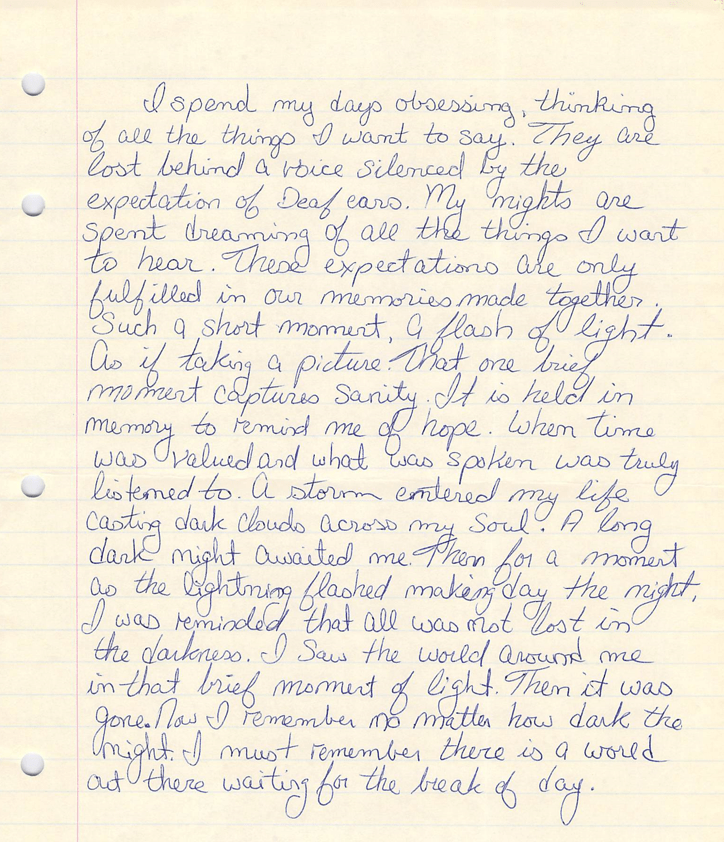 I spend my days obsessing, thinking
of all the things I want to say. They are
lost behind a voice silenced by the
expectation of Deaf ears. My nights are
spent dreaming of all the things I want
to hear. These expectations are only
fulfilled in our memories made together.
Such a short moment, a flash of light.
As if taking a picture. That one brief
moment captures sanity. It is held in
memory to remind me of hope. When time
was valued and what was spoken was truly
listened to. A storm entered my life
casting dark clouds across my soul. A long
dark night awaited me. Then for a moment
as the lightning flashed making day the night,
I was reminded that all was not lost in
the darkness. I saw the world around me
in that brief moment of light. Then it was
gone. Now I remember no matter how dark the
night. I must remember there is a world
out there waiting for the break of day.